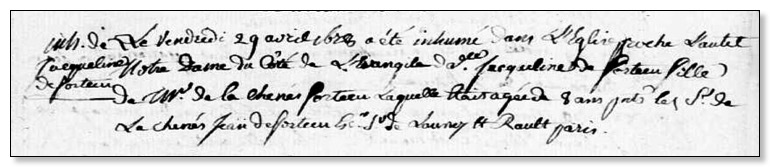 inh. de Le Vendredi 29 avril 1678 a été inhumé dans L'Eglise proche L'autel
Jacqueline Notre Dame du Côté de L'Evangile da.lle Jacqueline de Forteu fille
de forteu de Mr. de la chenês forteu laquelle âgée de 8 ans prts les Sr. de
La chenês Jean de forteu Sr. de Launey Rault paris.